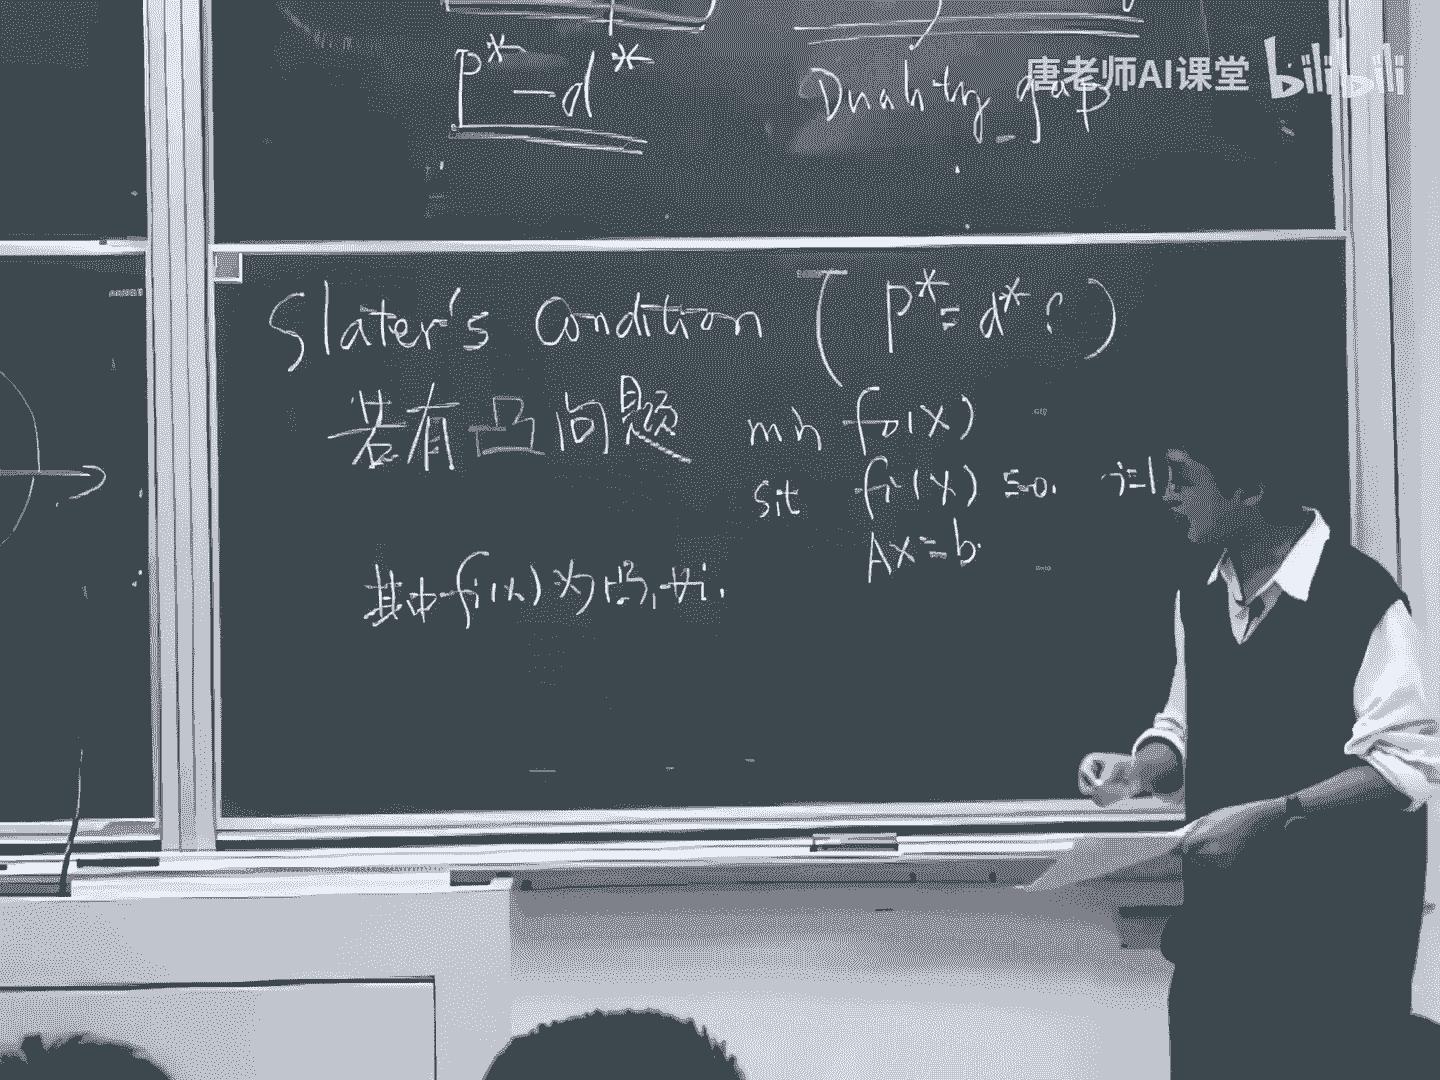 P* - d*
Duality gap
唐老师AI课堂 bilibili
Slater's Condition ( P* = d* ? )
若有凸问题 min f₀(x)
s.t fi(x) ≤ 0. i=1
Ax=b.
其中 fi(x) 为凸, ∀i.